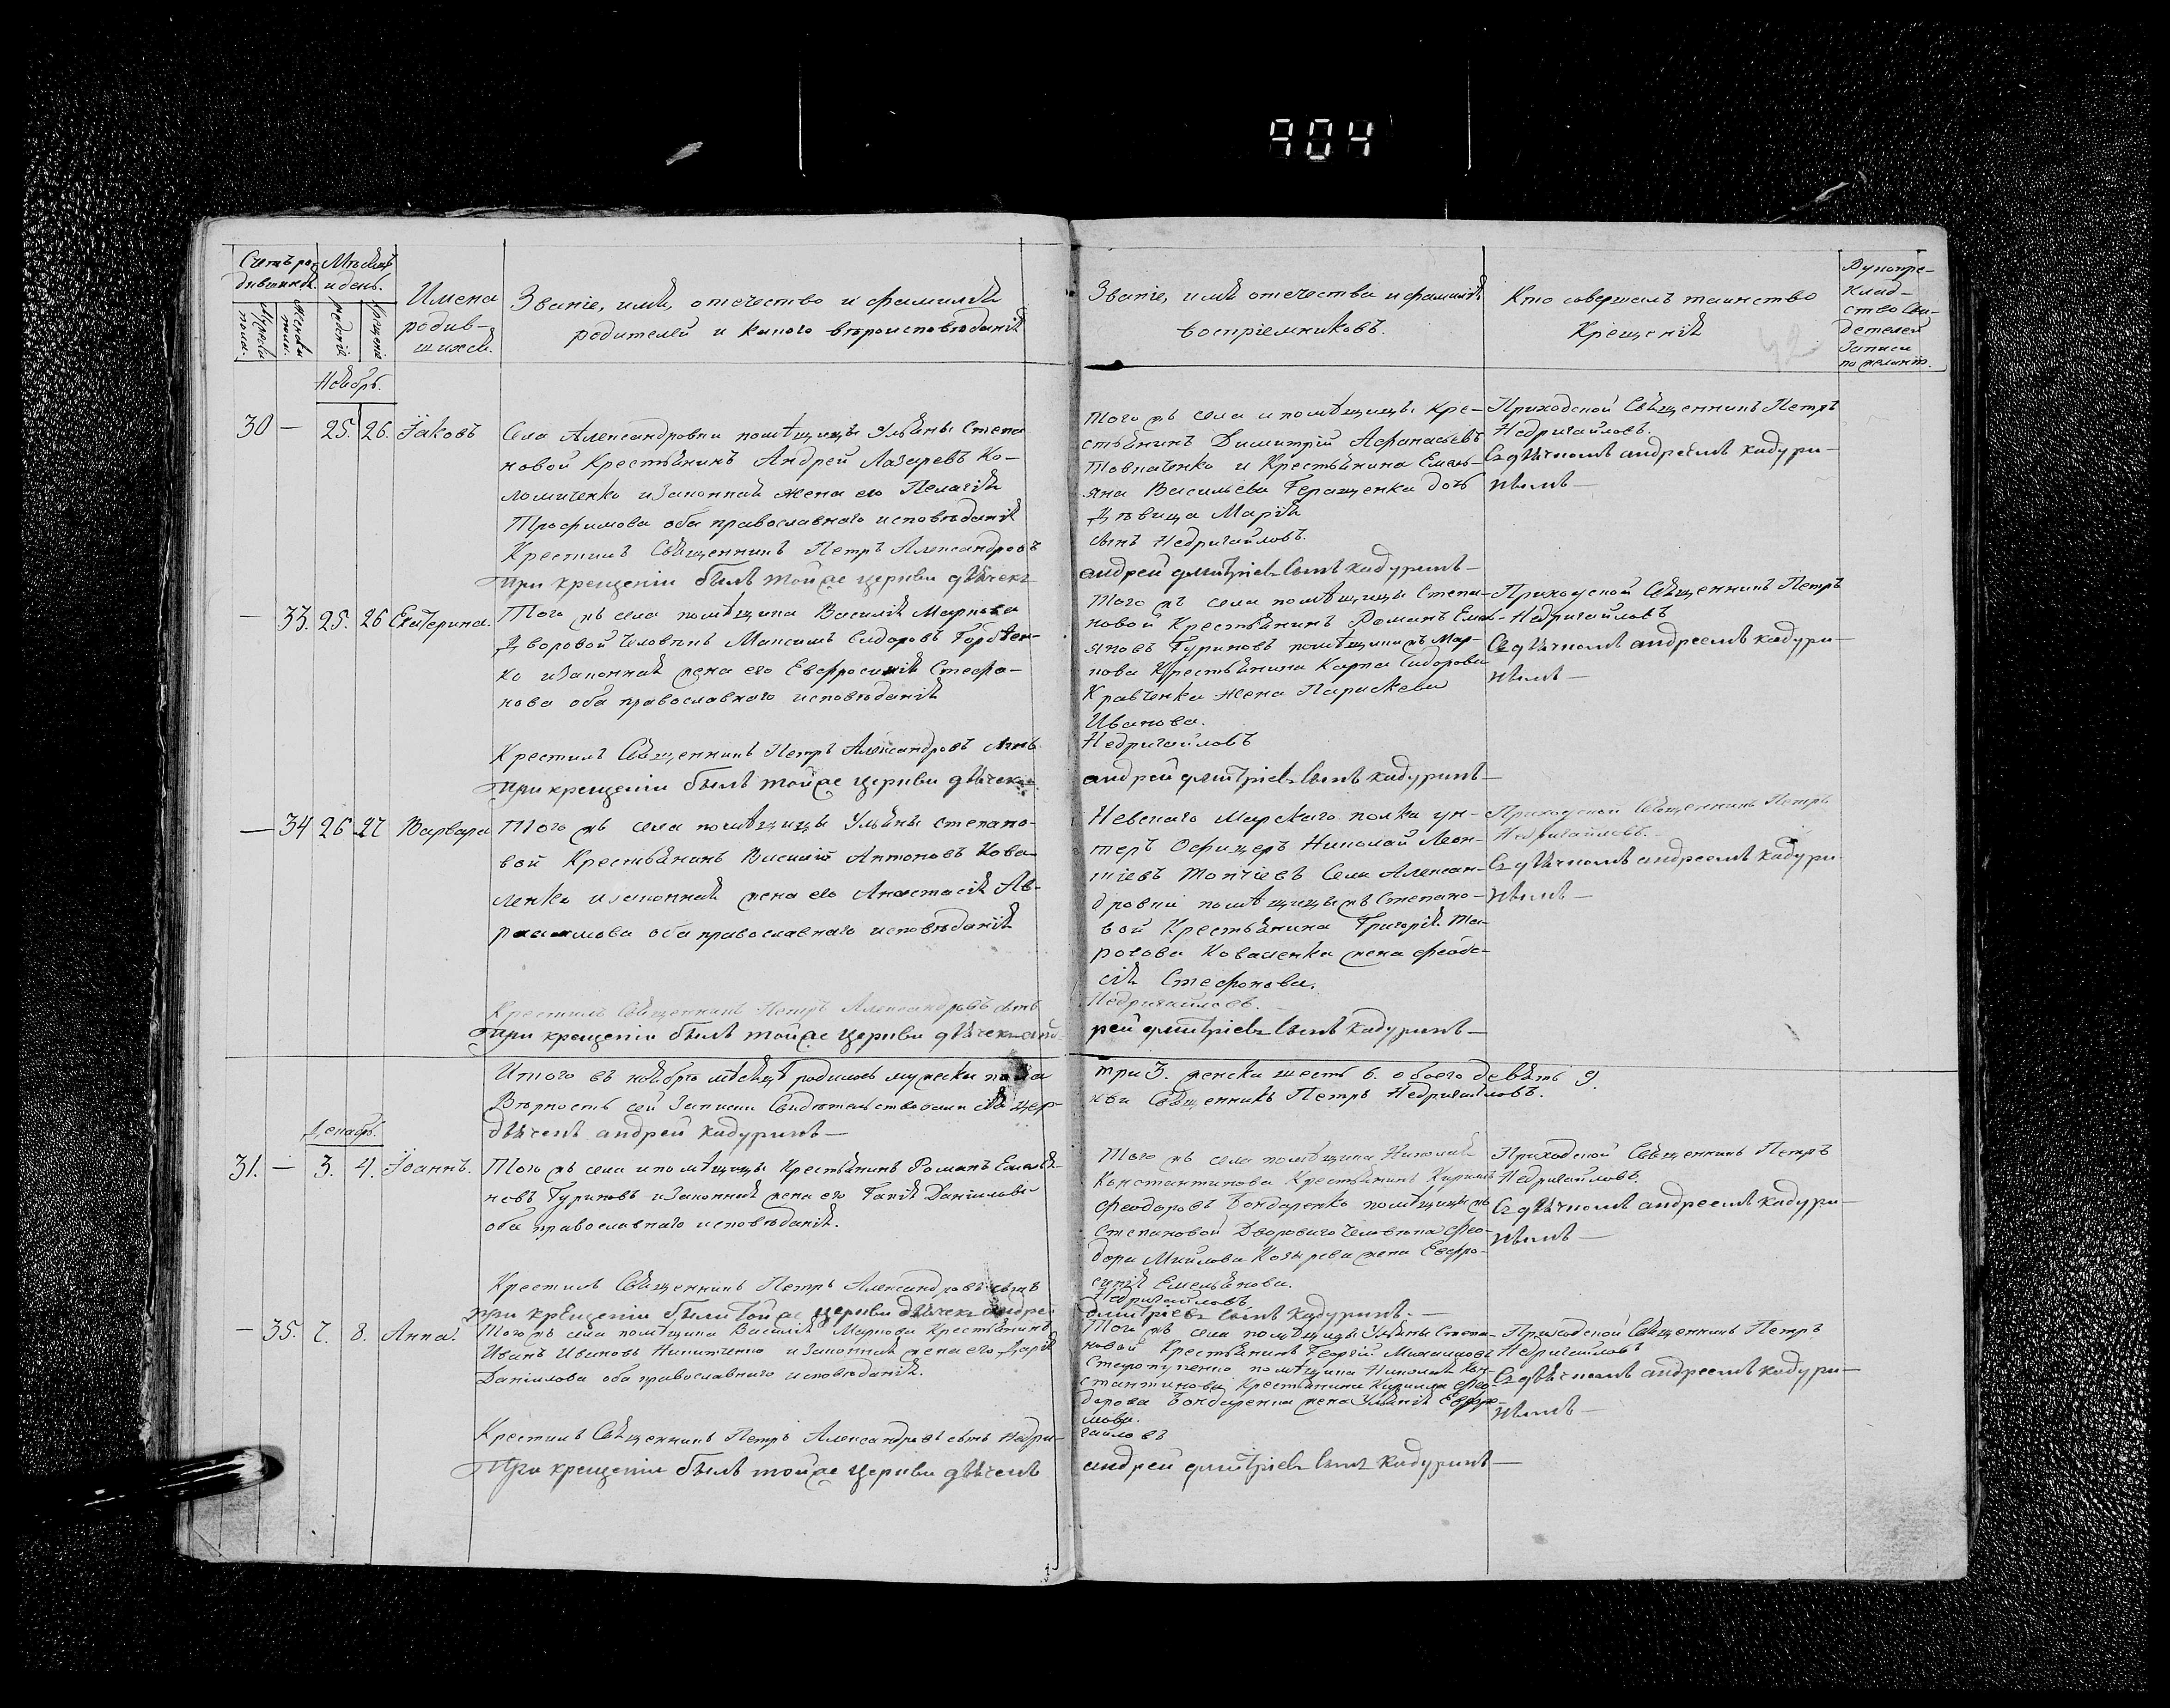 904
Счетъ ро-
дившихся.
Мужеска
пола.
Женска
пола.
Мѣсяцъ
и день.
рожденія
крещенія
Имена
родив-
шихся.
Званіе, имя, отечество и фамилія
родителей и какого вѣроисповѣданія
Званіе, имя отечества и фамилія
воспріемниковъ.
Кто совершалъ таинство
Крещенія
42
Рукопри-
клад-
ство Сви-
детелей
Записи
по желанію.
Ноябрь.
30 — 25. 26. Іаковъ
Села Александровки помѣщицы Ульяны Степа
новой Крестьянинъ Андрей Лазаревъ Ко-
ломиченко и Законная жена его Пелагія
Трофимова оба православнаго исповѣданія
Крестилъ Священникъ Петръ Александровъ
При крещеніи былъ той же церкви дьячекъ
того жъ села и помѣщицы Кре-
стьянинъ Димитрій Афанасьевъ
Товпаченко и Крестьянина Емель-
яна Васильева Геращенка дочь
Дѣвица Марія
сынъ Недригайловъ.
андрей дмитріевъ сынъ кадуринъ —
Приходской Священникъ Петръ
Недригайловъ.
Съ дьячкомъ андреемъ кадури-
нымъ —
— 33. 25. 26 Екатерина.
Того жъ села помѣщика Василія Маркова
Дворовой Человѣкъ Максимъ Сидоровъ Гордіен-
ко и Законная жена его Евфросинія Стефа-
нова оба православного исповѣданія
Крестилъ Священникъ Петръ Александровъ сынъ
При крещеніи былъ той же церкви дьячекъ
Того жъ села помѣщицы Степа-
новой Крестьянинъ Романъ Емель-
яновъ Гуриновъ помѣщика жъ Мар-
кова Крестьянина Карпа Сидорова
Кравченка жена Параскева
Иванова.
Недригайловъ
андрей дмитріевъ сынъ кадуринъ —
Приходской Священникъ Петръ
Недригайловъ
Съ дьячкомъ андреемъ кадури-
нымъ —
— 34 26 27 Варвара
Того жъ села помѣщицы Ульяны Степано-
вой Крестьянинъ Василій Антоновъ Кова-
ленко и законная жена его Анастасія Ав-
раамова оба православнаго исповѣданія
Крестилъ Священникъ Петръ Александровъ сынъ
При крещеніи былъ той же церкви дьячекъ анд-
Невскаго Морскаго полка ун-
теръ Офицеръ Николай Леон-
тіевъ Топчіевъ Села Алексан-
дровки помѣщицы жъ Степано-
вой Крестьянина Григорія
Коваленка жена Феодо-
сія Стефанова.
Недригайловъ.
рей дмитріевъ сынъ кадуринъ —
Приходской Священникъ Петръ
Недригайловъ.
Съ дьячкомъ андреемъ кадури-
нымъ —
Итого въ ноябрѣ мѣсяцѣ родилось мужеска пола
три 3. женска шесть 6. обоего девять 9.
Вѣрность сей Записи Свидѣтельствовали сея цер-
кви Священникъ Петръ Недригайловъ.
дьячекъ андрей кадуринъ —
Декабрь.
31. — 3. 4. Іоаннъ.
Того жъ села и помѣщицы Крестьянинъ Романъ Емелья-
новъ Гуриновъ и Законная жена его Таисія Даніилова
оба православнаго исповѣданія.
Крестилъ Священникъ Петръ Александровъ сынъ
При крещеніи былъ той же церкви дьячекъ андрей
Того жъ села помѣщика Николая
Константинова Крестьянинъ Кирилъ
Феодоровъ Бондаренко помѣщицы жъ
Степановой Двороваго Человѣка Фео-
дора Козырева жена Евфро-
синія Емельянова.
Недригайловъ
дмитріевъ сынъ кадуринъ. —
Приходской Священникъ Петръ
Недригайловъ.
Съ дьячкомъ андреемъ кадури-
нымъ —
— 35. 7. 8. Анна.
Того жъ села помѣщика Василія Маркова Крестьянинъ
Иванъ Ивановъ Никитченко и Законная жена его Дарія
Даніилова оба православнаго исповѣданія.
Крестилъ Священникъ Петръ Александровъ сынъ Недри-
При крещеніи былъ той же церкви дьячекъ
Того жъ села помѣщицы Ульяны Степа-
новой Крестьянинъ Георгій Михаиловъ
помѣщика Николая Кон-
стантинова Крестьянина Кирилла Фео-
дорова Бондаренка жена Ульянія Ефре-
мова.
гайловъ
андрей дмитріевъ сынъ кадуринъ —
Приходской Священникъ Петръ
Недригайловъ
Съ дьячкомъ андреемъ кадури-
нымъ —